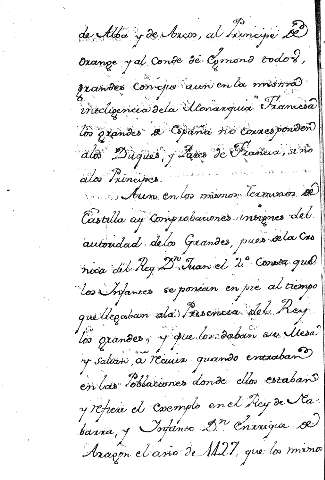 de Alba y de Arcos, al Principe de
Orange y al Conde de Egmond todos,
grandes con que aun en la misma
inteligencia dela Monarquia Francesa
los grandes de España no corresponden
alos Duques, y Pares de Francia, sino
alos Principes.
Aun en los mismos terminos de
Castilla ay comprobaciones insignes del
autoridad delos Grandes, pues dela Cro
nica del Rey Dn Juan el 2º Consta que
los Infantes se ponian en pie al tiempo
que llegaban ala Presencia del Rey
los grandes, y que los daban su Mesa
y salian a recivir quando entraban
en las Poblaciones donde ellos estaban
y refiere el exemplo en el Rey de Na
barra, y Infante Dn Enrrique de
Aragon el año de 1427, que los mismos